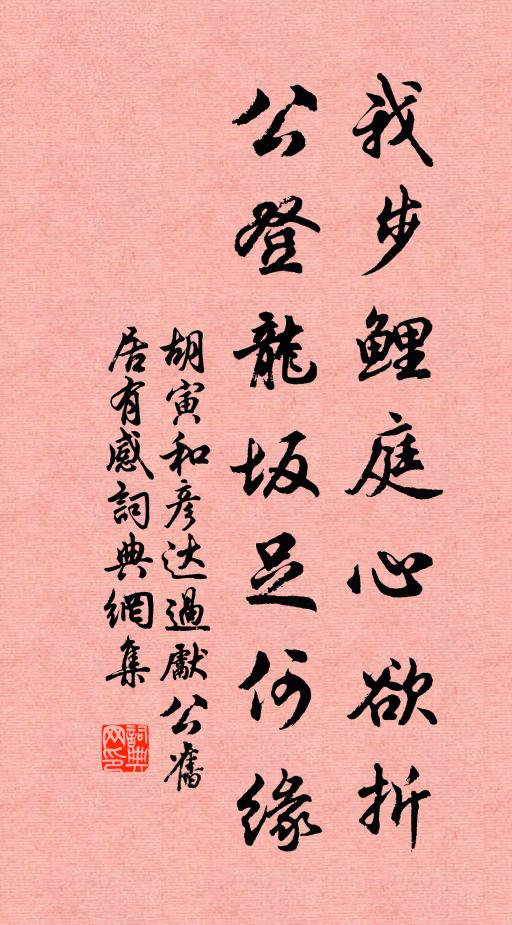 我步鯉庭心欲折
公登龍坂足何緣
胡寅和彦达過獻公舊
居有感詞典網集
詞典
网印